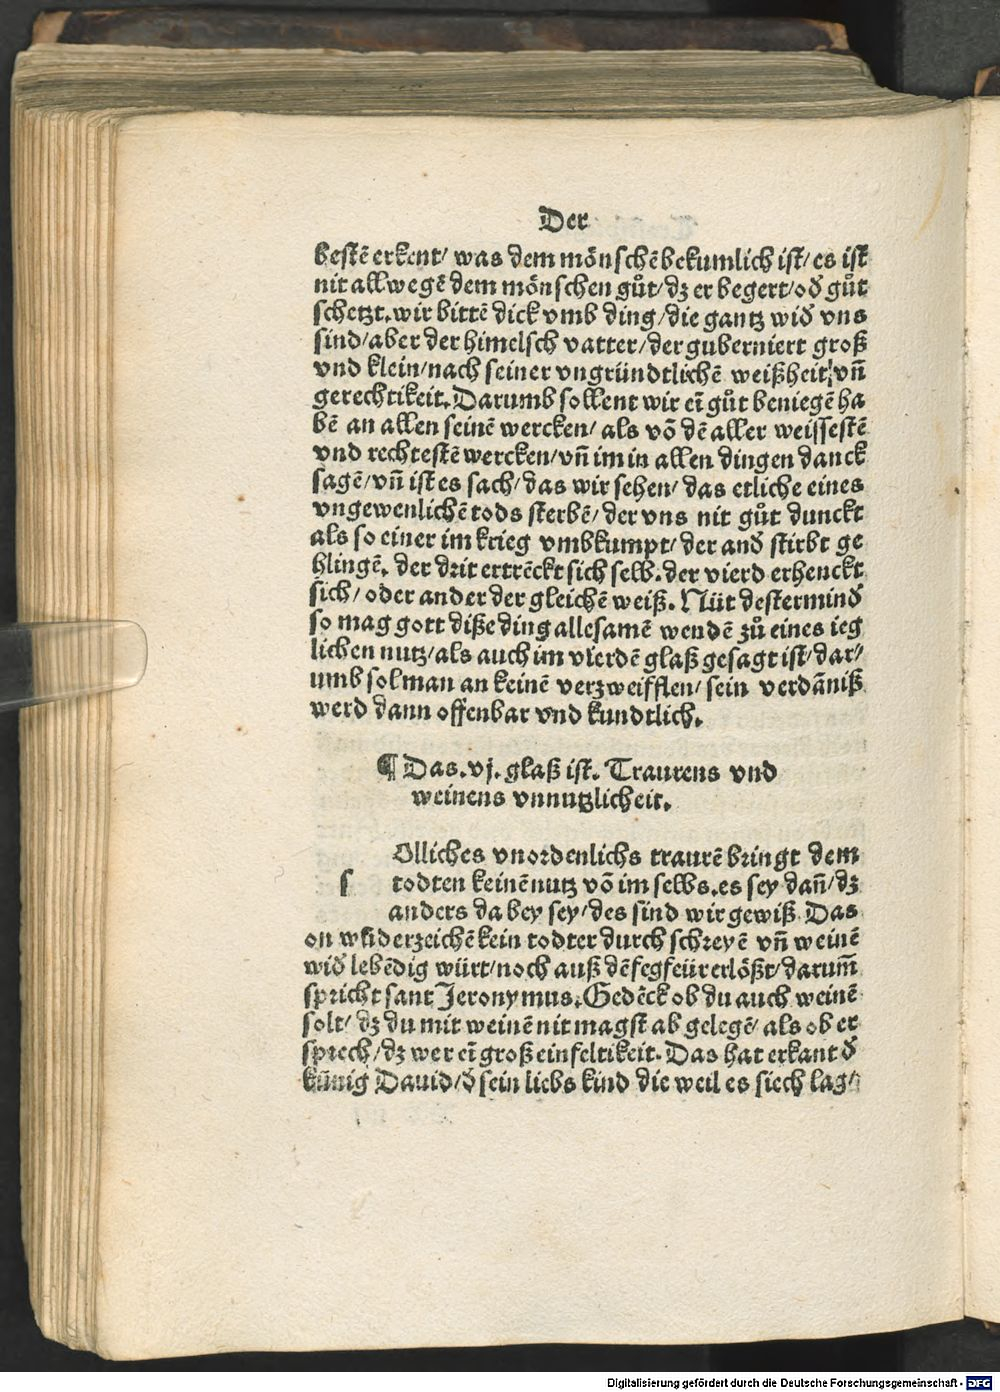 Der
bestē erkent/ was dem mönschē bekumlich ist/ es ist
nit allwegē dem mönschen gůt/ dz er begert/ od̕ gůt
schetzt. wir bittē dick vmb ding/ die gantz wid̕ vns
sind/ aber der himelsch vatter/ der guberniert groß
vnd klein/ nach seiner vngründtlichē weißheit/ vñ
gerechtikeit. Darumb sollent wir eī gůt beniegē ha
bē an allen seinē wercken/ als vō dē aller weissestē
vnd rechtestē wercken/ vñ im in allen dingen danck
sagē/ vñ ist es sach/ das wir sehen/ das etliche eines
vngewenlichē tods sterbē/ der vns nit gůt dunckt
als so einer im krieg vmbkumpt/ der and̕ stirbt ge
hlingē. der drit ertrēckt sich selb. der vierd erhenckt
sich/ oder ander der gleichē weiß. Nüt destermind̕
so mag gott diße ding allesamē wendē zů eines ieg
lichen nutz/ als auch im vierdē glaß gesagt ist/ dar/
umb sol man an keinē verzweifflen/ sein verdāniß
werd dann offenbar vnd kundtlich.
¶ Das. vj. glaß ist. Traurens vnd
weinens vnnutzlicheit.
Olliches vnordenlichs traurē bringt dem
s todten keinē nutz vō im selbs. es sey dañ/ dz
anders da bey sey/ des sind wir gewiß. Das
on wūderzeichē kein todter durch schreyē vñ weinē
wid̕ lebēdig würt/ noch auß dē fegfeür erlößt/ darum̄
spricht sant Jeronymus. Gedēck ob du auch weinē
solt/ dz du mit weinē nit magst ab gelegē/ als ob er
sprech/ dz wer eī große einfeltikeit. Das hat erkant d̕
künig Dauid/ d̕ sein liebs kind die weil es siech lag/
Digitalisierung gefördert durch die Deutsche Forschungsgemeinschaft - DFG